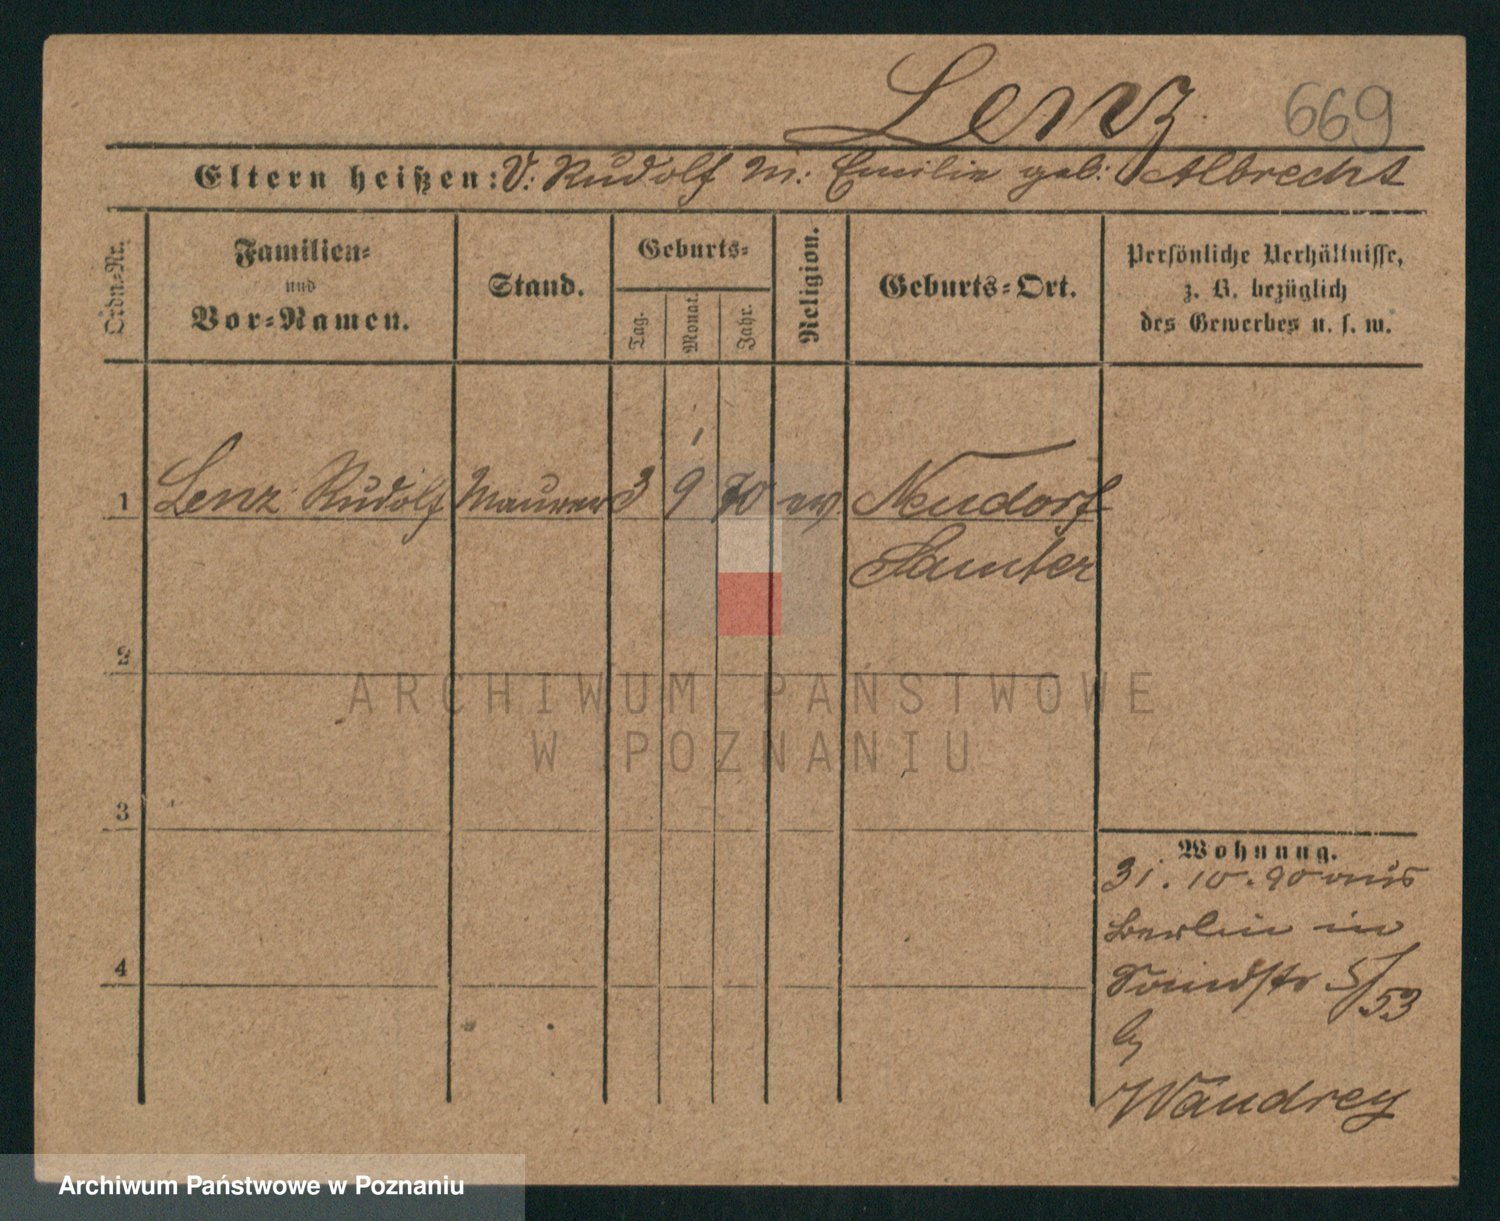 Lenz 669
Eltern heißen: V: Rudolf M: Emilie geb: Albrecht
Ordn.-Nr.
Familien-
und
Vor-Namen.
Stand.
Geburts-
Tag.
Monat.
Jahr.
Religion.
Geburts-Ort.
Persönliche Verhältnisse,
z. B. bezüglich
des Gewerbes u. s. w.
1 Lenz Rudolf Maurer 3 9 70 ev Neudorf
Samter
2
ARCHIWUM PAŃSTWOWE
W POZNANIU
3
Wohnung.
31. 10. 90 aus
Berlin in
4
5/53
Wandrey
Archiwum Państwowe w Poznaniu